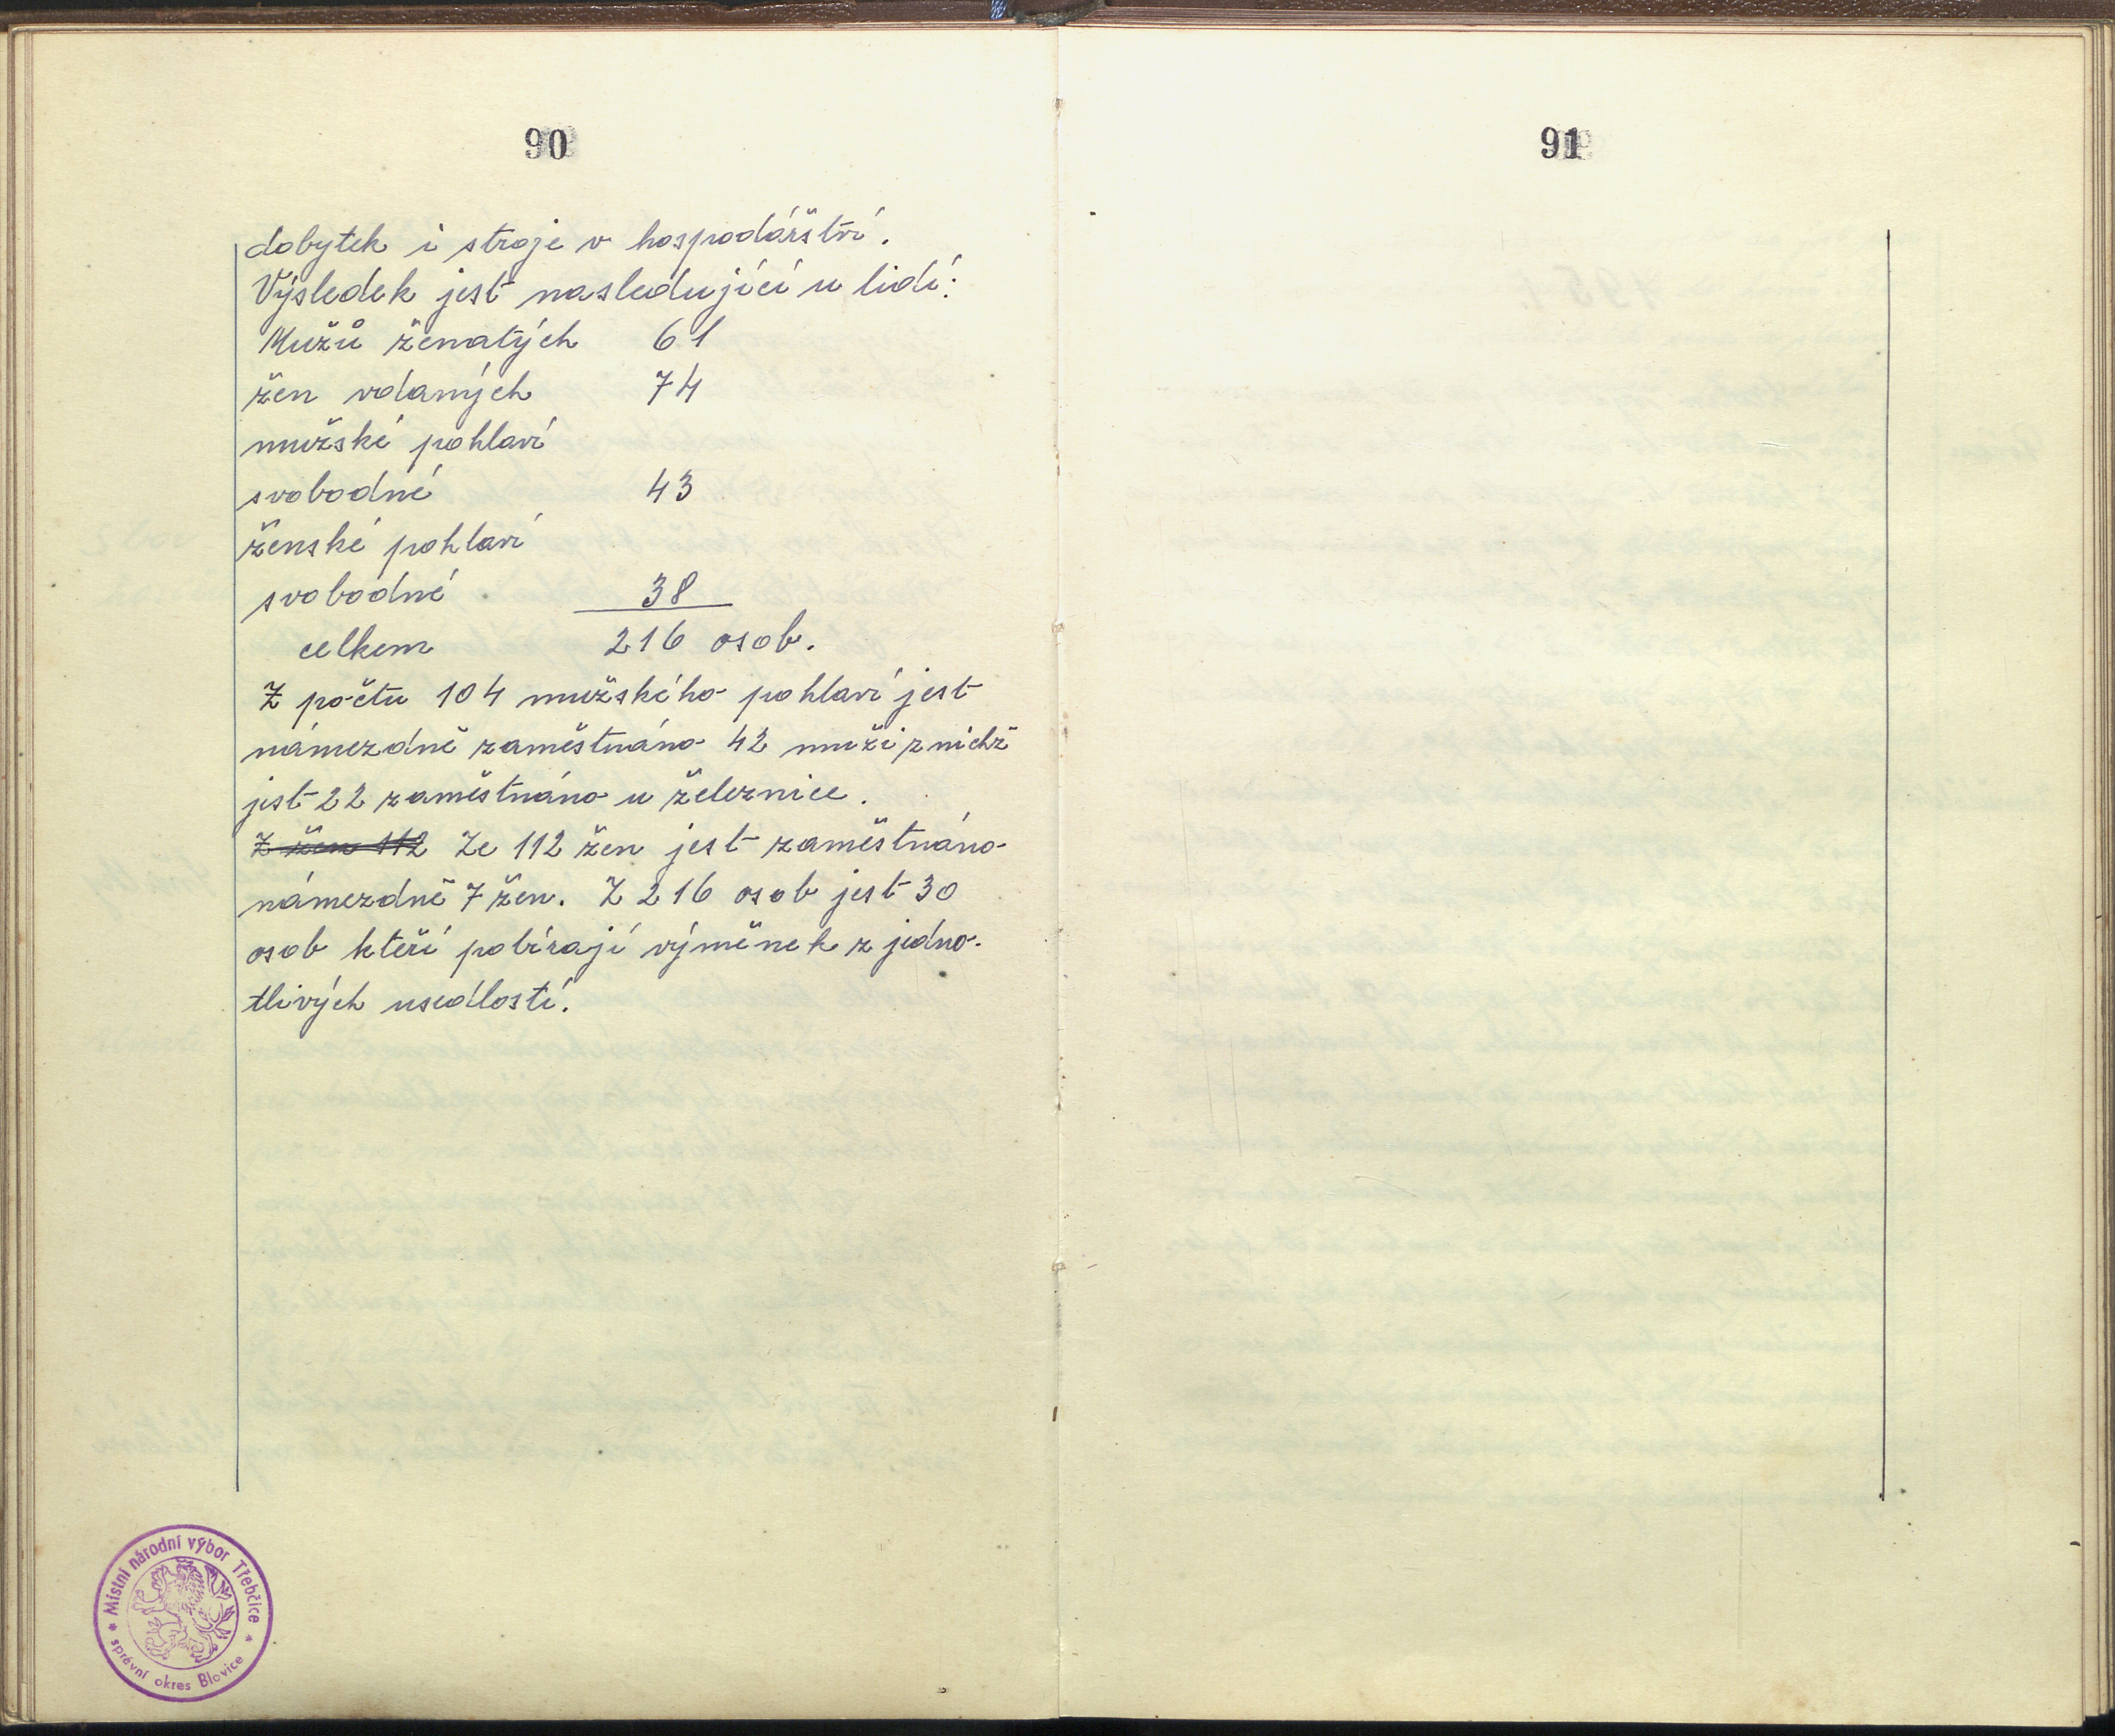 90
dobytek i stroje v hospodářství.
Výsledek jest nasledující u lidí:
Mužů ženatých 61
žen vdaných 74
mužské pohlaví
svobodné 43
ženské pohlaví
svobodné 38
celkem 216 osob.
Z počtu 104 mužského pohlaví jest
námezdně zaměstnáno 42 muži z nichž
jest 22 zaměstnáno u železnice.
Z žen 112 Ze 112 žen jest zaměstnáno
námezdně 7 žen. Z 216 osob jest 30
osob kteří pobírají výměnek z jedno-
tlivých usedlostí.
* Místní národní výbor Třebčice *
správní okres Blovice
91